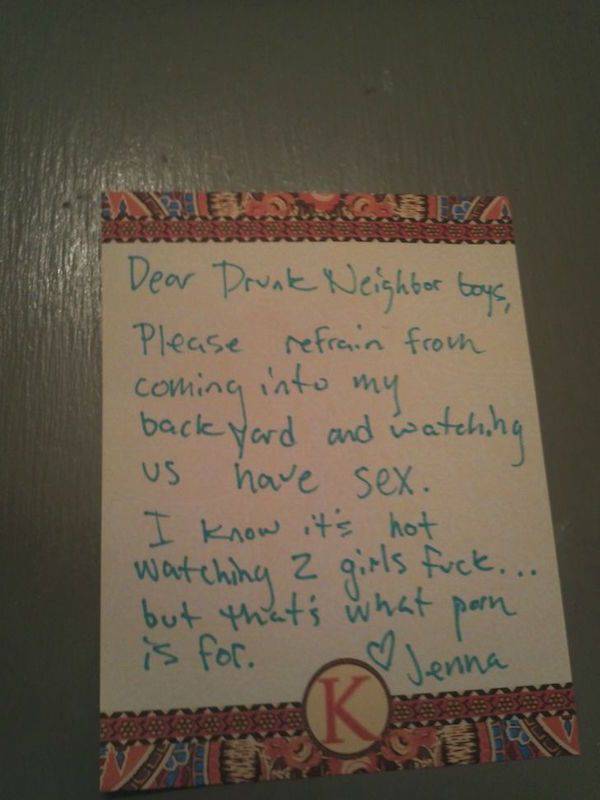 Dear Drunk Neighbor boys,
Please refrain from
coming into my
back yard and watching
us have sex.
I know it's hot
watching 2 girls fuck...
but that's what porn
is for. ♡ Jenna
K